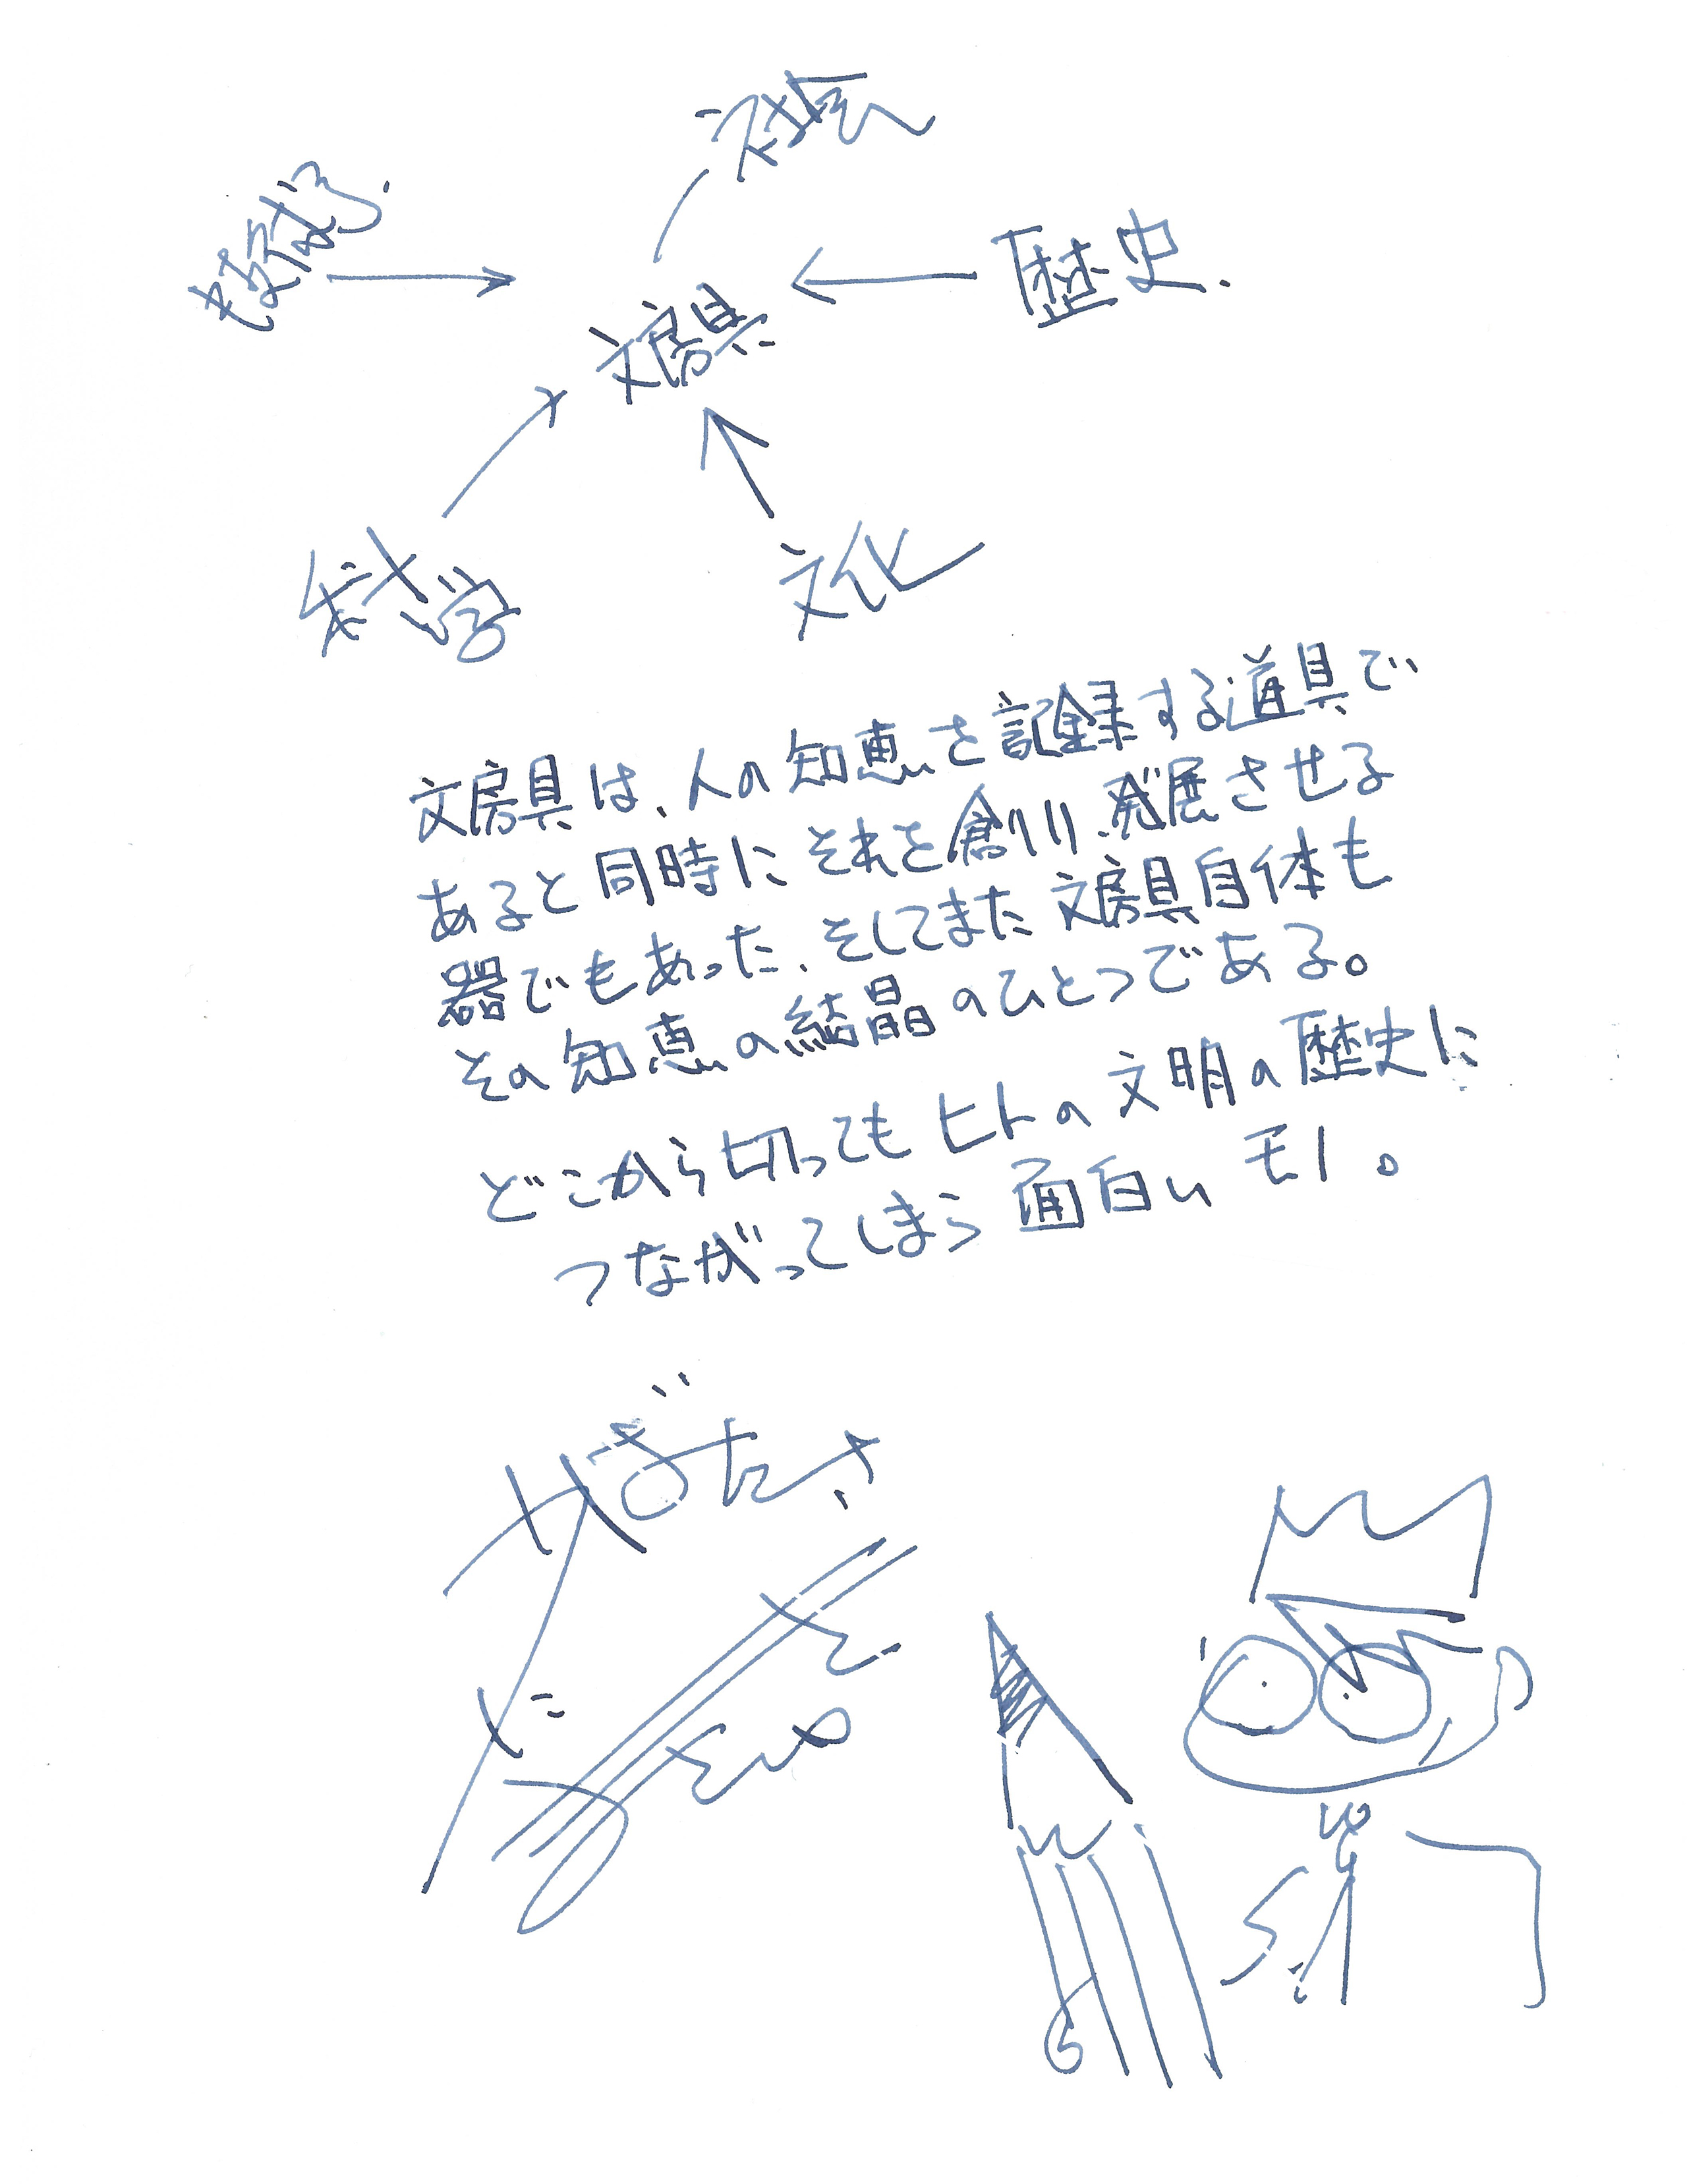 社会
歴史.
文房具
文化
文房具は、人の知恵を記録する道具で
あると同時にそれを創り、発展させる
器でもあった、そしてまた文房具自体も
その知恵の結晶のひとつである。
どこから切ってもヒトの文明の歴史に
つながってしまう面白いモノ。